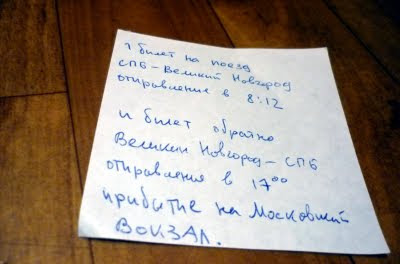 1 билет на поезд
СПб - Великий Новгород
отправление в 8:12
и билет обратно
Великий Новгород - СПб
отправления в 17⁰⁰
прибытие на Московский
вокзал.